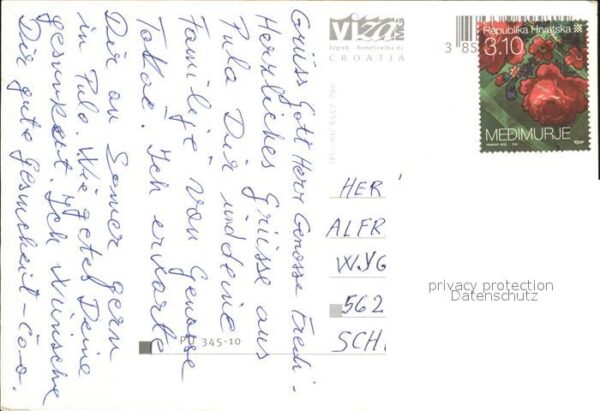 Grüss Gott Herr Genosse Fredi-
Herrliches Grüsse aus
Pula Dir und deine
Familije von Genosse
Tokač. Ich erwarte
Dir an Somer gern
in Pula. Wie getes Deine
gesundkeit. Ich Wünische
Dir gute Gesuncheit-Ćao.
Viza MG
Zagreb
CROATIA
PU 345-10
3 85
Republika Hrvatska
3.10
MEĐIMURJE
HER
ALFR
WYG
562
SCH
privacy protection
Datenschutz